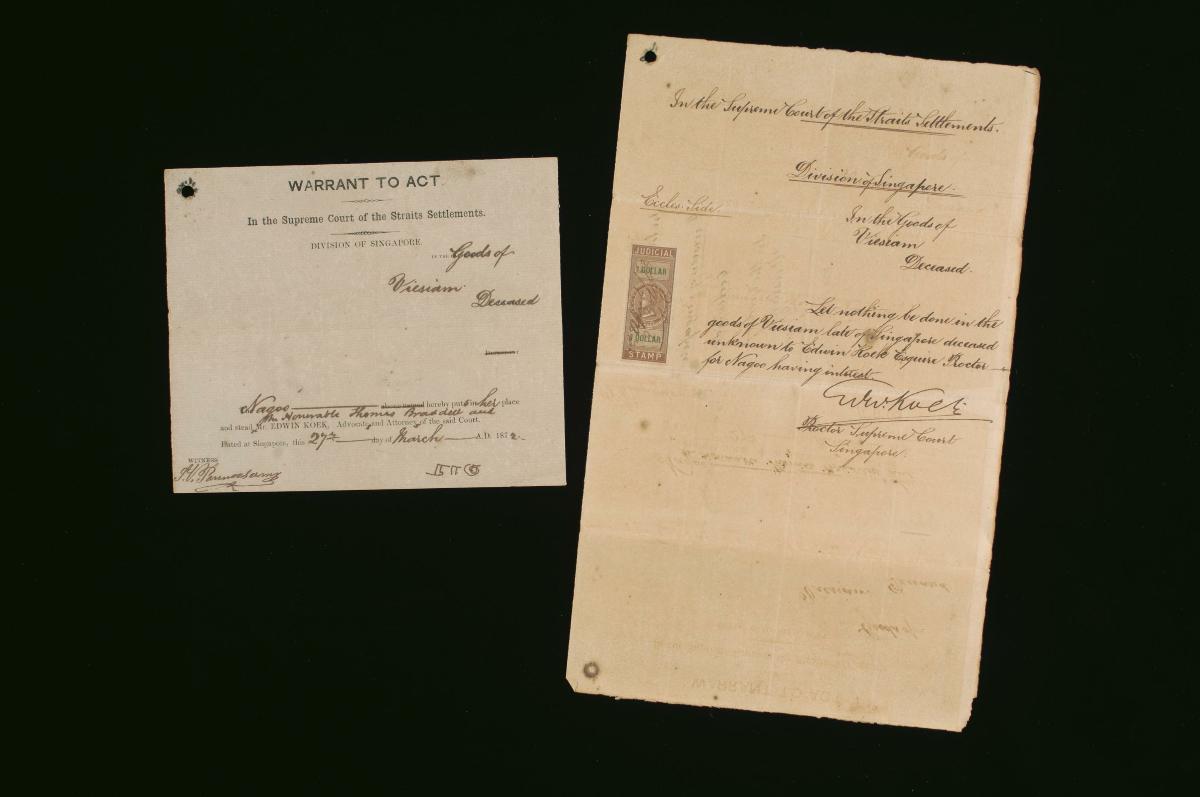 WARRANT TO ACT
In the Supreme Court of the Straits Settlements.
DIVISION OF SINGAPORE.
IN THE Goods of
Viesiam
Deceased
Nagoo hereby put in her place
The Honourable Thomas Braddell and
and stead Mr. EDWIN KOEK, Advocate and Attorney of the said Court.
Dated at Singapore, this 27th day of March A.D. 1872.
WITNESS
In the Supreme Court of the Straits Settlements.
Division of Singapore.
Eccles. Side.
In the Goods of
Viesiam
Deceased.
JUDICIAL
1 DOLLAR
1 DOLLAR
STAMP
Let nothing be done in the
goods of Viesiam late of Singapore deceased
unknown to Edwin Koek Esquire Proctor
for Nagoo having interest.
Edw. Koek
Proctor Supreme Court
Singapore.